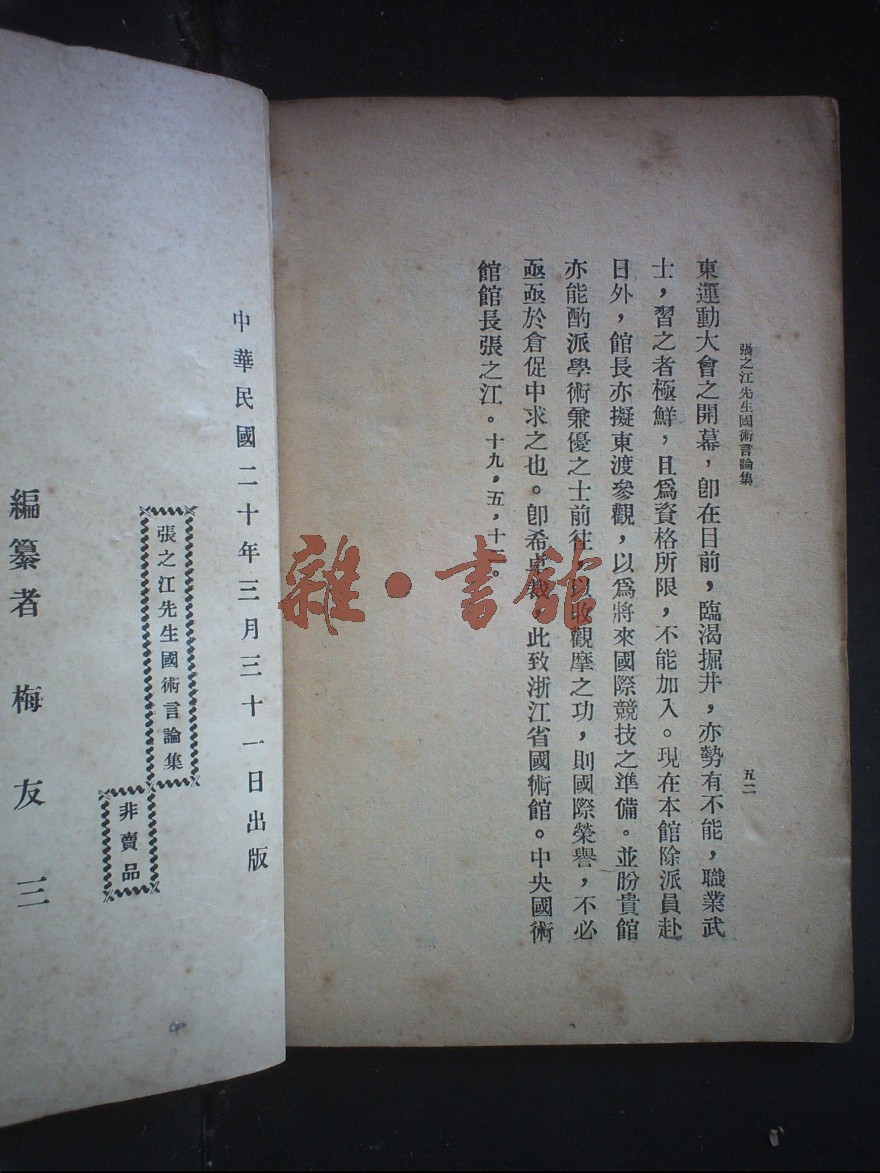 張之江先生國術言論集
五二
東運動大會之開幕，卽在目前，臨渴掘井，亦勢有不能，職業武
士，習之者極鮮，且爲資格所限，不能加入。現在本館除派員赴
日外，館長亦擬東渡參觀，以爲將來國際競技之準備。並盼貴館
亦能酌派學術兼優之士前往，以收觀摩之功，則國際榮譽，不必
亟亟於倉促中求之也。卽希卓裁，此致浙江省國術館。中央國術
館館長張之江。十九，五，十
中華民國二十年三月三十一日出版
張之江先生國術言論集
非賣品
編纂者 梅友三
雜·書館